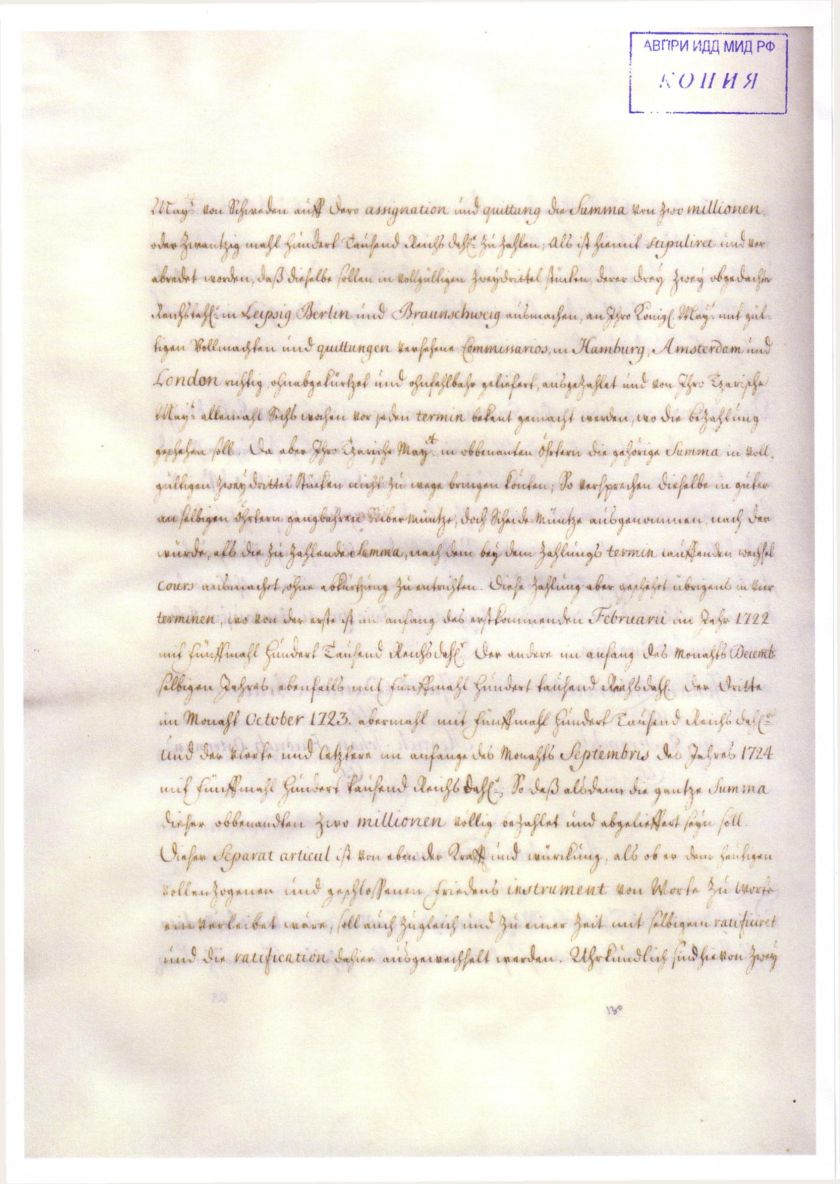 АВПРИ ИДД МИД РФ
КОПИЯ
May:t von Schweden auff dero assignation und quittung die Summa von zwo millionen
oder zwantzig mahl hundert tausend Reichs dahl: zu zahlen; Als ist hiemit stipuliret und ver
abredet worden, daß dieselbe sollen in vollgültigen zweydrittel stücken derer drey zwey obgedachte
Reichsthal: in Leipsig Berlin und Braunschweig ausmachen, an Ihro Königl May:t mit gül-
tigen Vollmachten und quittungen versehene Commissarios, in Hamburg, Amsterdam und
London richtig, ohnabgekürtzet und ohnfehlbahr geliefert, ausgezahlet und von Ihro Tzarische
May:t allemahl Sechs wochen vor jeden termin bekent gemacht werden, wo die bezahlung
geschehen soll. Da aber Ihro Tzarische May:t in obbenanten öhrtern die gehörige Summa in voll-
gültigen zweydrittel stücken nicht zu wege bringen könten; So versprechen dieselbe in guter
an selbigen öhrtern gangbahren Silber müntze, doch Scheide müntze ausgenommen, nach der
würde, als die zu zahlende Summa, nach dem bey dem zahlungs termin lauffenden wechsel
cours ausmachet, ohne abkürtzung zu entrichten. Diese zahlung aber geschehet übrigens in vier
terminen, wo von der erste ist im anfang des erstkommenden Februarii im Jahr 1722
mit fünffmahl hundert tausend Reichsdahl: der andere im anfang des Monahts Decemb:
selbigen Jahres, ebenfalls mit fünffmahl hundert tausend Reichsdahl: der dritte
im Monaht October 1723. abermahl mit fünffmahl hundert tausend Reichs dahl:
und der vierte und letztere im anfange des Monahts Septembris des Jahres 1724
mit fünffmahl hundert tausend Reichs dahl:, So daß alsdenn die gantze Summa
dieser obbenandten zwo millionen völlig bezahlet und abgelieffert seyn soll.
Dieser Separat articul ist von eben der Krafft und würckung, als ob er dem heutigen
vollenzogenen und geschlossenen friedens instrument von Worte zu Worte
einverleibet wäre, soll auch zugleich und zu einer Zeit mit selbigem ratificiret
und die ratification dahier ausgewechselt werden. Uhrkundlich sind hievon zwey